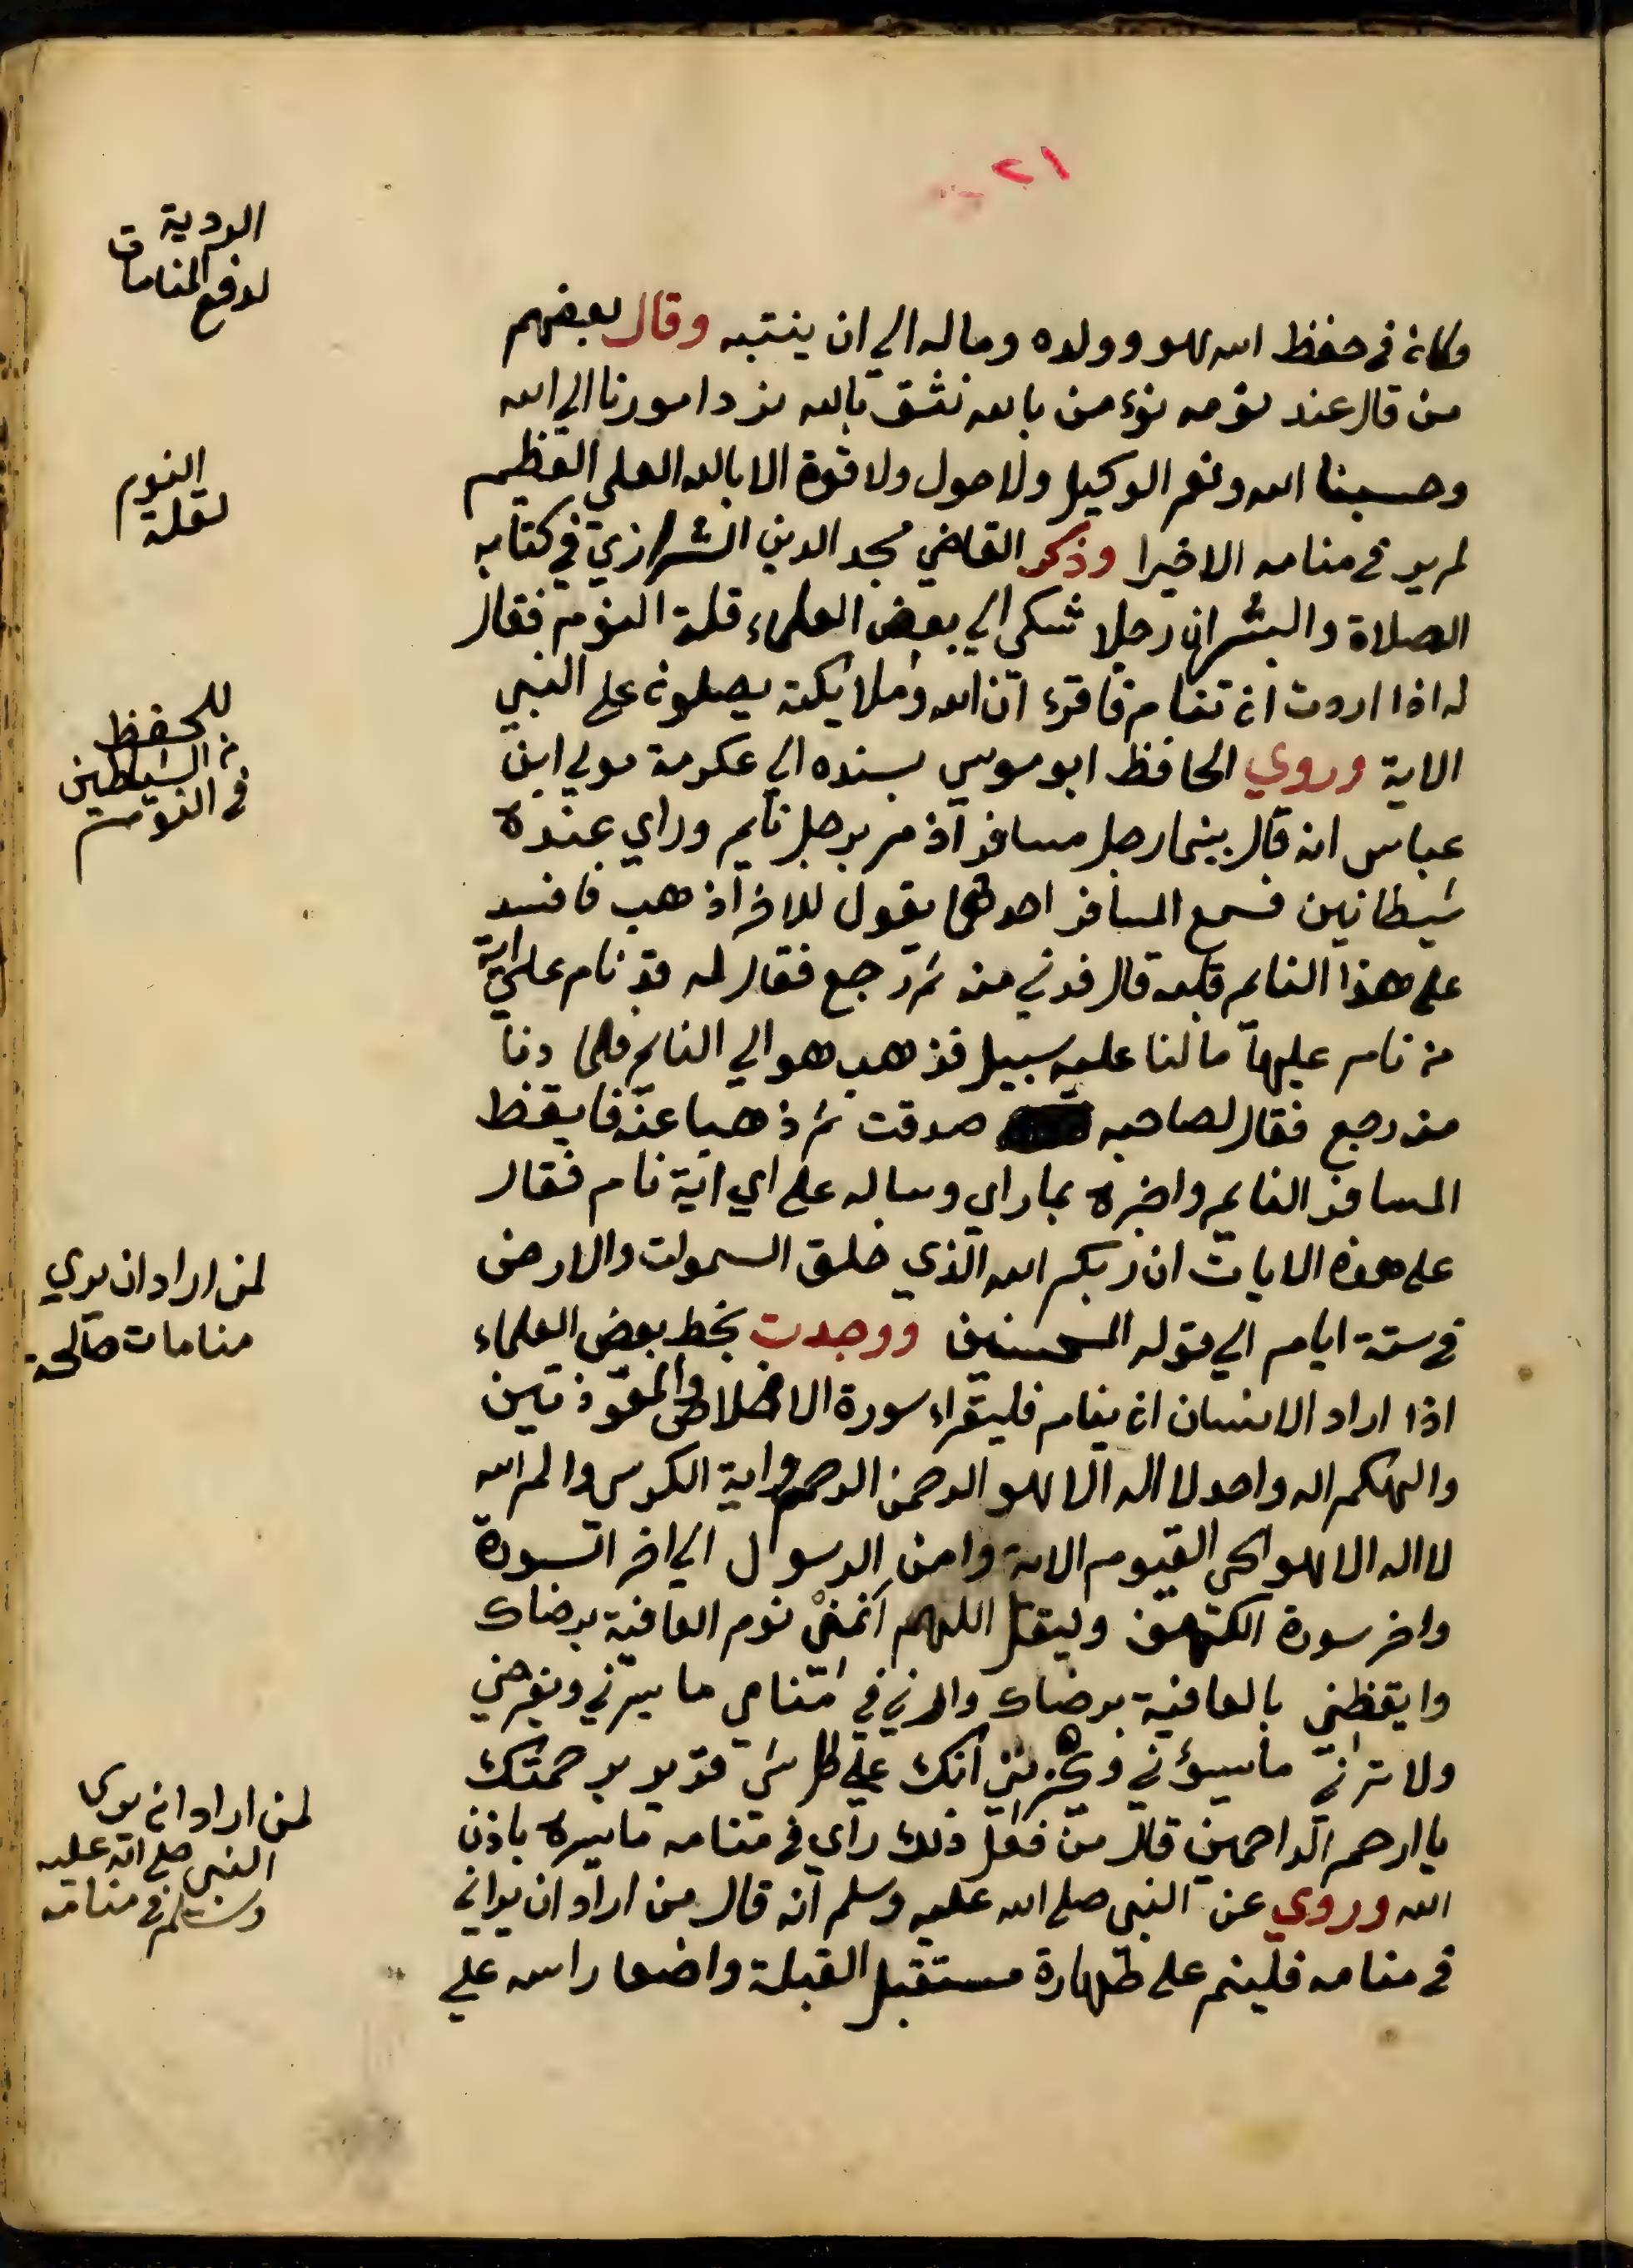 ٢١
وكان في حفظ الله هو وولده وماله الي ان ينتبه وقال بعضهم
من قال عند نومه نؤمن بالله نثق بالله نرد امورنا الي الله
وحسبنا الله ونعم الوكيل ولا حول ولا قوة الا بالله العلي العظيم
لم ير في منامه الا خيرا وذكر القاضي مجد الدين الشيرازي في كتابه
الصلاة والبشر ان رجلا شكى الي بعض العلماء قلة النوم فقال
له اذا اردت ان تنام فاقرء ان الله وملايكته يصلون على النبي
الاية وروي الحافظ ابو موسي بسنده الي عكرمة مولي ابن
عباس انه قال بينما رجل مسافر اذ مر برجل نايم وراي عنده
شيطانين فسمع المسافر احدهما يقول للاخر اذهب فافسد
على هذا النايم قلبه قال فدني منه ثم رجع فقال له قد نام على اية
من نام عليها ما لنا عليه سبيل فذهب هو الي النايم فلما دنا
منه رجع فقال لصاحبه صدقت ثم ذهبا عنه فايقظ
المسافر النايم واخبره بما راي وساله على اي اية نام فقال
على هذه الايات ان ربكم الله الذي خلق السموات والارض
في ستة ايام الي قوله المحسنين ووجدت بخط بعض العلماء
اذا اراد الانسان ان ينام فليقراء سورة الاخلاص والمعوذتين
والهكم اله واحد لا اله الا هو الرحمن الرحيم واية الكرسي والم الله
لا اله الا هو الحي القيوم الاية وامن الرسول الي اخر السورة
واخر سورة الكهف وليقل اللهم انمني نوم العافية برضاك
وايقظني بالعافية برضاك وارني في منامي ما يسرني ويفرحني
ولا ترني ما يسؤني ويحزنني انك علي كل شي قدير برحمتك
يا ارحم الراحمين قال من فعل ذلك راي في منامه ما يسره باذن
الله وروي عن النبي صلى الله عليه وسلم انه قال من اراد ان يراني
في منامه فلينم على طهارة مستقبل القبلة واضعا راسه علي
الردية
لدفع المنامات
النوم
لقلة
للحفظ
من الشياطين
في النوم
لمن اراد ان يري
منامات صالحة
لمن اراد ان يرى
النبي صلى الله عليه
وسلم في منامه